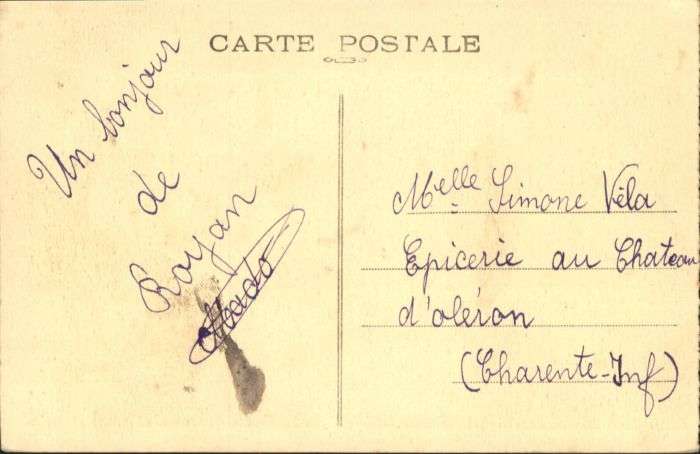 CARTE POSTALE
Un bonjour
de
Royan
Mado
Melle Simone Véla
Epicerie au Chateau
d'oléron
(Charente-Inf)